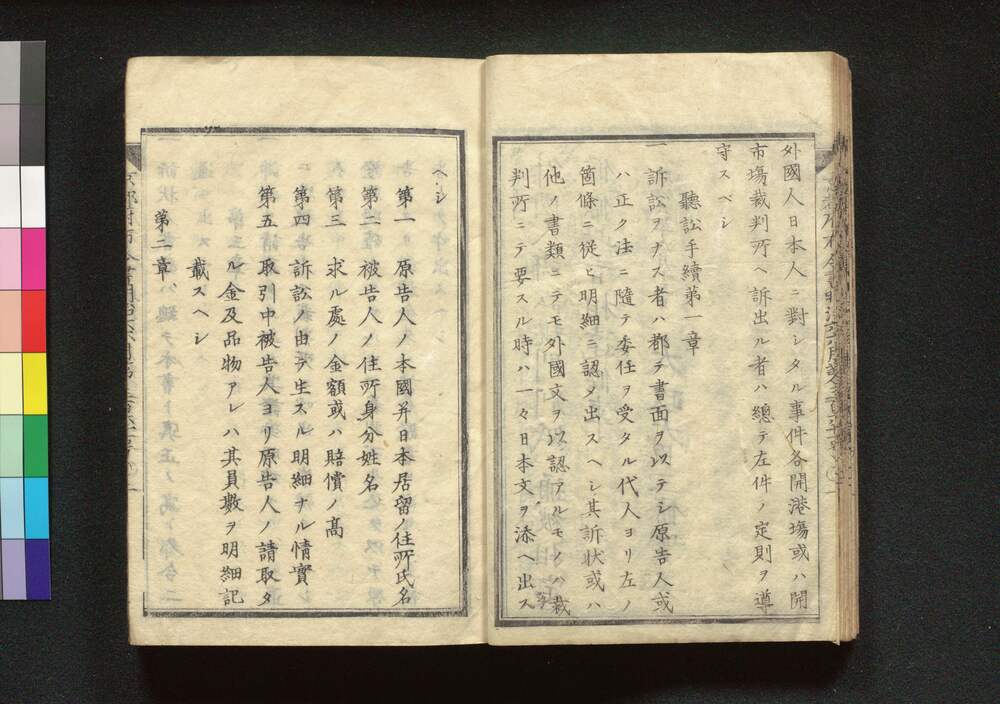 外國人日本人ニ對シタル事件各開港塲或ハ開
市塲裁判所ヘ訴出ル者ハ總テ左件ノ定則ヲ遵
守スベシ
聽訟手續第一章
一訴訟ヲナス者ハ都テ書面ヲ以テシ原告人或
ハ正ク法ニ隨テ委任ヲ受タル代人ヨリ左ノ
箇條ニ從ヒ明細ニ認メ出スヘシ其訴状或ハ
他ノ書類ニテモ外國文ヲ以認アルモノハ裁
判所ニテ要スル時ハ一々日本文ヲ添ヘ出ス
ヘシ
第一 原告人ノ本國并日本居留ノ住所氏名
第二 被告人ノ住所身分姓名
第三 求ル處ノ金額或ハ賠償ノ高
第四 訴訟ノ由テ生スル明細ナル情實
第五 取引中被告人ヨリ原告人ノ請取タ
ル金及品物アレハ其員數ヲ明細記
載スヘシ
第二章